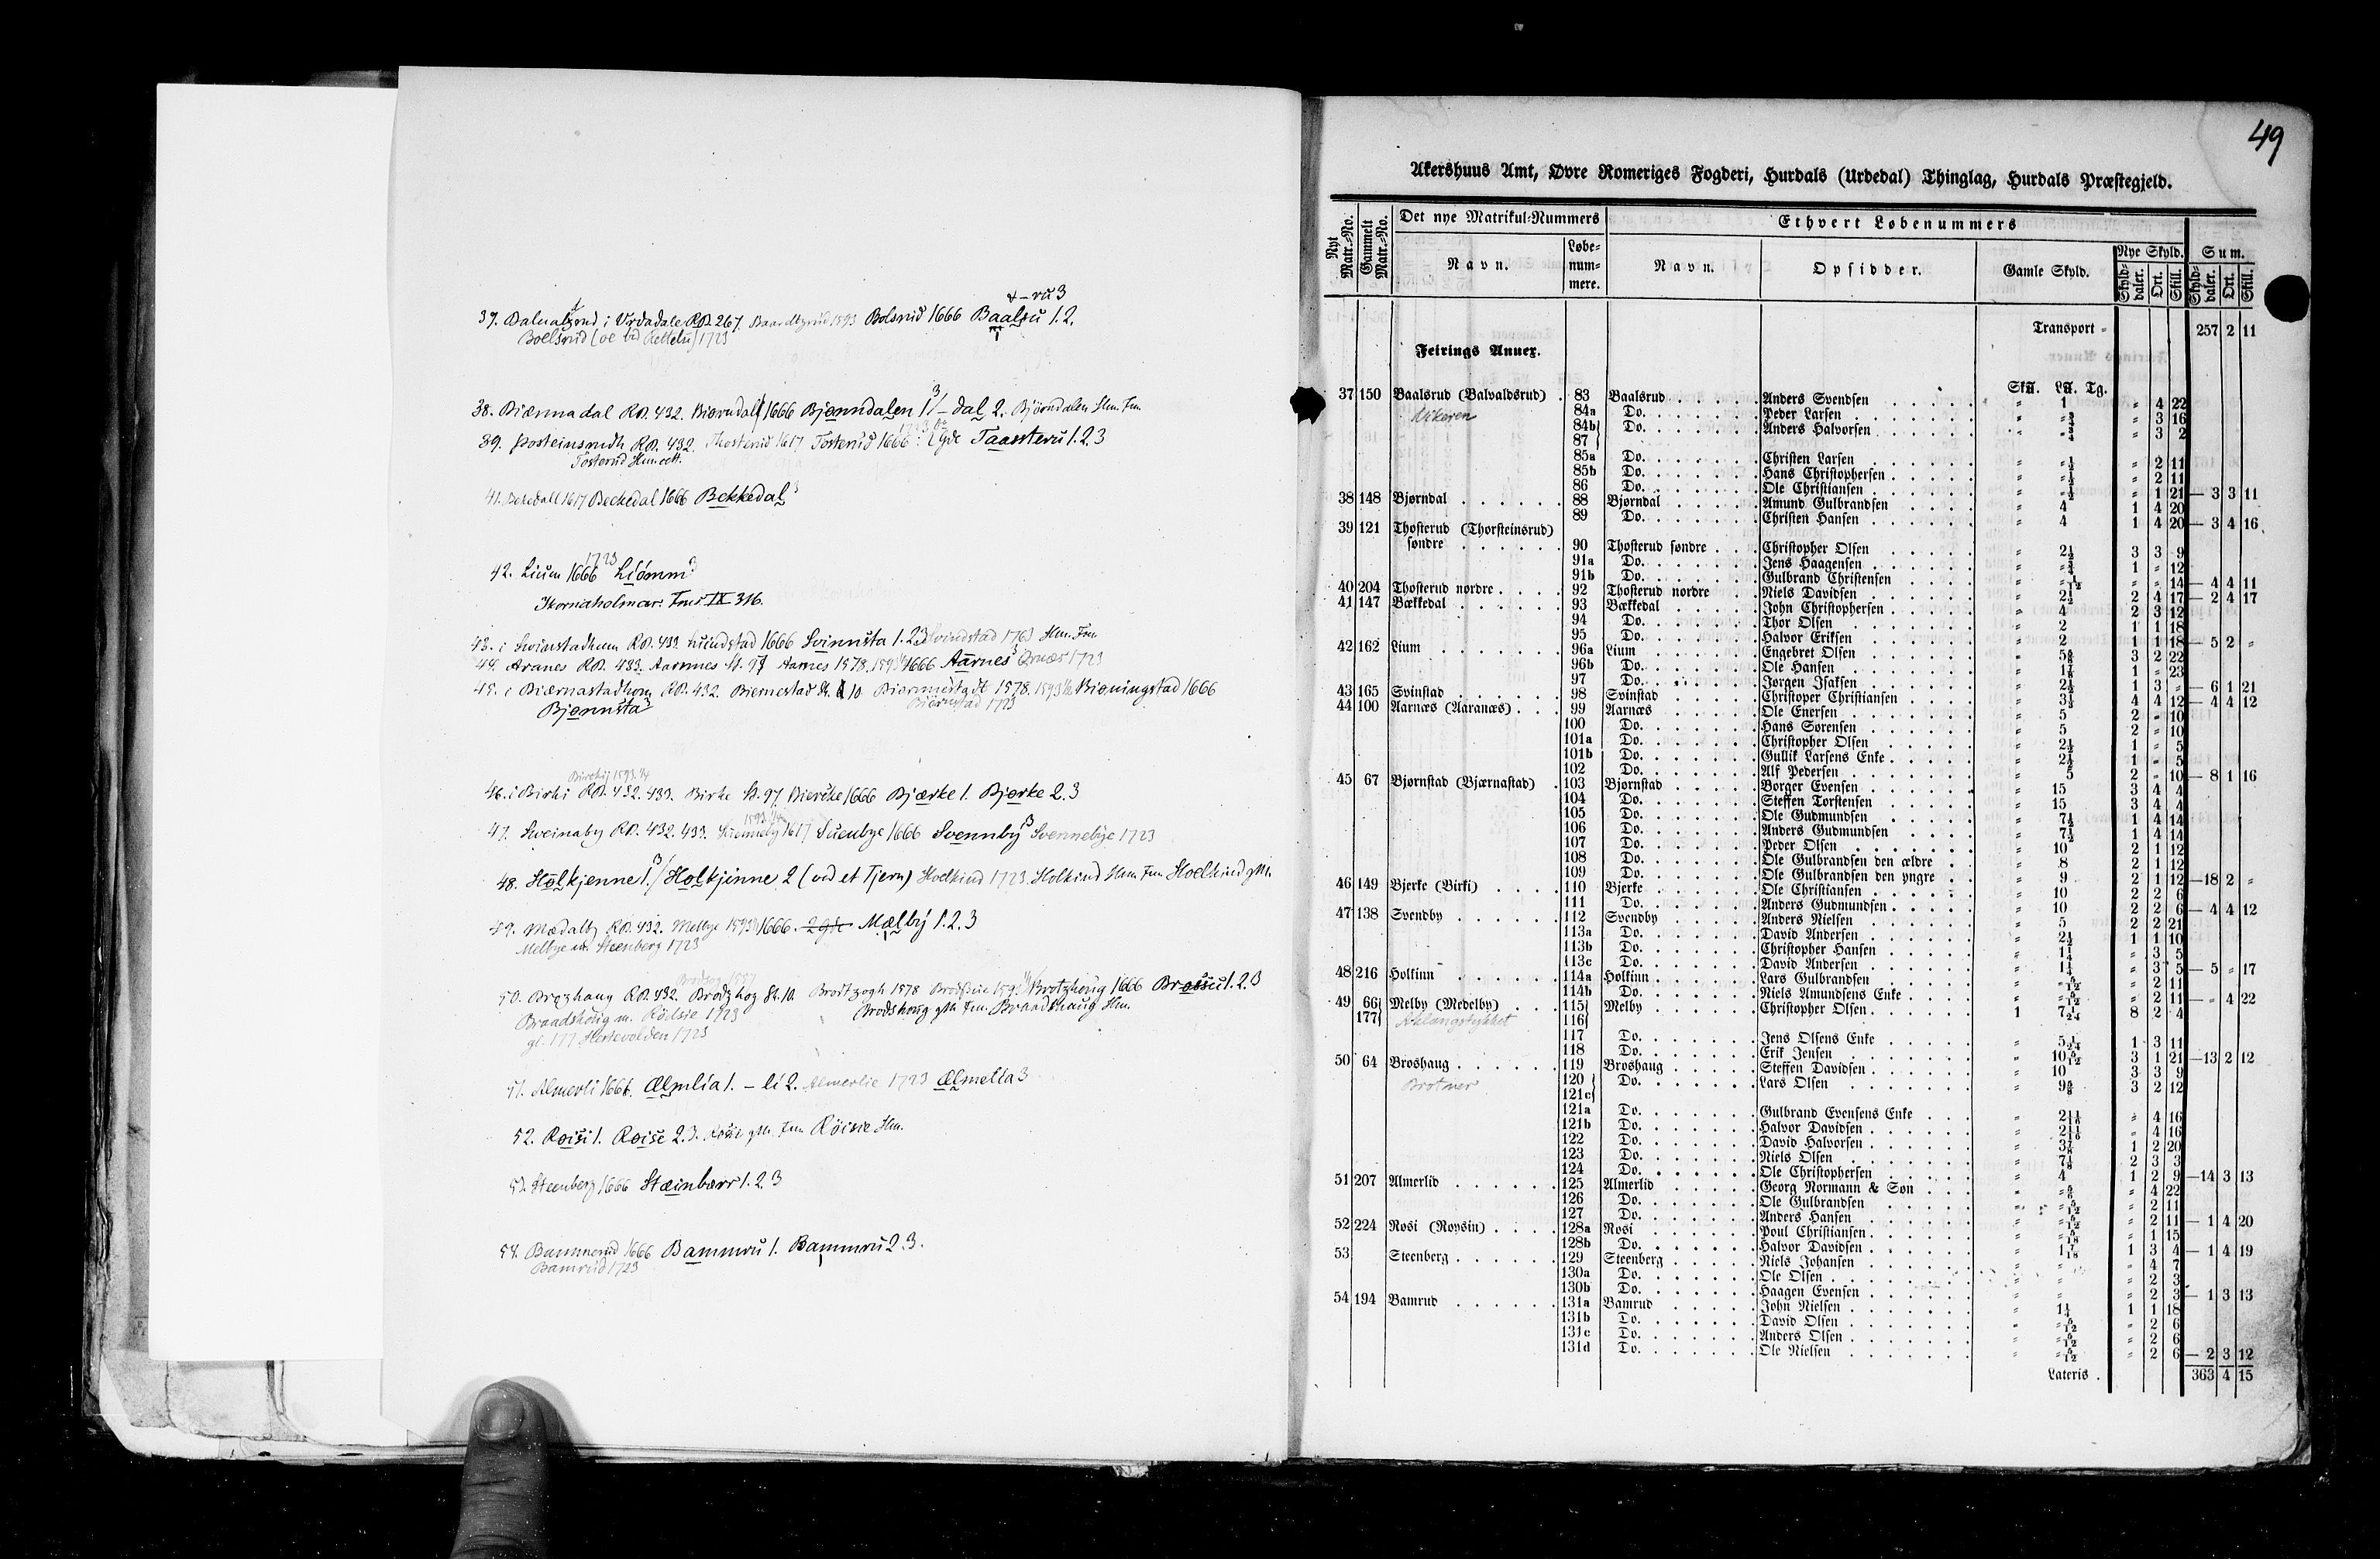 & – ru 3
37. Balualzrud i Vrdadale RB. 267. Baardtzrud 1593 Bolsrud 1666 Baalsu 1. 2.
Boelsrud 1723
38. Biærnadal RB. 432. Biørndall 1666 Bjønndalen 1. – dal 2. Bjørndalen Hm. Fm.
39. Þorsteinsrudh RB. 432. Thosterud 1617 Tosterud 1666 Taassteru 1. 2. 3
Tosterud Hm.
41. Beckedall 1617 Beckedal 1666 Bekkedal 3
42. Lium 1666 1723 Liomm 3
Kornaholmar Fms. IX 316.
43. i Swinstadhum RB. 433. Suindstad 1666 Svinnsta 1. 2 3 Svindstad 1763 Hm. Fm
44. Aranes RB. 433. Aarnes St. 97 Aarnes 1578. 1593 1666 Aarnes 3 1723
45. i Biærnastadhom RB. 432. Biernestad St. 10 1578. 1593 Biørningstad 1666
Bjønnsta 3 Biørnstad 1723
46. i Birki RB. 432. 433. Birke St. 97 Biercke 1666 Bjærke 1. Bjørke 2. 3
47. Sweinaby RB. 432. 433. 1617 Suenbye 1666 Svennby 3 Svennebye 1723
48. Holkjenne 1. Holkjinne 2 (ved et Tjern) Hoelkind 1723. Holkind Hm. Fm.
49. Mædalby RB. 432. Melbye 1593 1666. Mælby 1. 2. 3
Melbye m. Steenberg 1723
50. Brozhaug RB. 432. Brodzhog St. 10. Brodtzogh 1578 Brotzhoug 1666 Brøssu 1. 2. 3
Braadshoug m. Röilsie 1723 Brodshoug gM. Fm. Braadshaug Hm.
gl. 177 Hestevolden 1723
51. Almerli 1666. Ælmlia 1. – li 2. Almerlie 1723 Ælmelia 3
52. Røisi 1. Røise 2. 3. gM. Fm Röisie Hm.
53. Steenberg 1666 Stæinbærr 1. 2. 3
54. Bammerud 1666 Bammru 1. Bammru 2. 3.
Bamrud 1723
49
Akershuus Amt, Øvre Romeriges Fogderi, Hurdals (Urdedal) Thinglag, Hurdals Præstegjeld.
Nyt Matr.-No. Gammelt Matr.-No. Det nye Matrikul-Nummers Ethvert Løbenummers
Navn. Løbe-nummere. Navn. Opsidder. Gamle Skyld. Nye Skyld. Sum.
Skylddaler. Ort. Skill. Skylddaler. Ort. Skill.
Transport = 257 2 11
Feirings Annex.
Sk℔. L℔. Tg.
37 150 Baalsrud (Balvaldsrud) . 83 Baalsrud Anders Svendsen = 1 = 4 22
84a Do. Peder Larsen = 3 16
84b Do. Anders Halvorsen = 3 2
87
85a Do. Christen Larsen = 2 11
85b Do. Hans Christophersen = 2 11
86 Do. Ole Christiansen = 1 21 — 3 3 11
38 148 Bjørndal 88 Bjørndal Amund Gulbrandsen = 4 1 4 20
89 Do. Christen Hansen = 4 1 4 20 — 3 4 16
39 121 Thosterud (Thorsteinsrud)
søndre 90 Thosterud søndre Christopher Olsen = 2½ 3 3 9
91a Do. Jens Haagensen 1 = 12
91b Do. Gulbrand Christensen = = 14 — 4 4 11
40 204 Thosterud nordre 92 Thosterud nordre Niels Davidsen = 2½ 2 4 17 — 2 4 17
41 147 Bækkedal 93 Bækkedal John Christophersen = 4 2 3 12
94 Do. Thor Olsen = 2 1 1 18
95 Do. Halvor Eriksen = 2 1 1 18 — 5 2 =
42 162 Lium 96a Lium Engebret Olsen 3 2 22
96b Do. Ole Hansen 1 = 23
97 Do. Jørgen Isaksen 1 3 = — 6 1 21
43 165 Svinstad 98 Svinstad Christoper Christiansen 4 4 12 — 4 4 12
44 100 Aarnæs (Aaranæs) 99 Aarnæs Ole Enersen = 5 2 = 10
100 Do. Hans Sørensen = 5 2 = 10
101a Do. Christopher Olsen = 2½ 1 = 5
101b Do. Gullik Larsens Enke = 2½ 1 = 5
102 Do. Alf Pedersen = 5 2 = 10 — 8 1 16
45 67 Bjørnstad (Bjærnastad) 103 Bjørnstad Borger Evensen = 15 3 4 4
104 Do. Steffen Torstensen = 15 3 4 4
105 Do. Ole Gudmundsen = 7½ 1 4 14
106 Do. Anders Gudmundsen = 7½ 1 4 14
107 Do. Peder Olsen = 10 2 1 12
108 Do. Ole Gulbrandsen den ældre = 8 2 1 12
109 Do. Ole Gulbrandsen den yngre = 9 2 1 12 — 18 2 =
46 149 Bjerke (Birki) 110 Bjerke Ole Christiansen = 10 2 2 6
111 Do. Anders Gudmundsen = 10 2 2 6 — 4 4 12
47 138 Svendby 112 Svendby Anders Nielsen = 5 2 2 21
113a Do. David Andersen = 2½ 1 1 10
113b Do. Christopher Hansen = 1¼ = 3 5
113c Do. David Andersen = 1¼ = 3 5 — 5 = 17
48 216 Holkinn 114a Holkinn Lars Gulbrandsen = 5/12 = 2 11
114b Do. Niels Amundsens Enke = 5/12 = 2 11 — = 4 22
49 66 Melby (Medelby) 115 Melby Christopher Olsen 1 7 1/24 8 2 4
177 116
117 Do. Jens Olsens Enke = 5 1/24 1 3 11
118 Do. Erik Jensen = 10 5/12 3 1 21 — 13 2 12
50 64 Broshaug 119 Broshaug Steffen Davidsen = 10 3 3 9
Brotner 120 Do. Lars Olsen 3 2 12
121c
121a Do. Gulbrand Evensens Enke = 2 11/16 = 4 16
121b Do. Halvor Davidsen = 2 11/16 = 4 16
122 Do. David Halvorsen 1 2 20
123 Do. Niels Olsen 2 3 3
124 Do. Ole Christophersen = 4 1 2 9 — 14 3 13
51 207 Almerlid 125 Almerlid Georg Normann & Søn = 4 22
126 Do. Ole Gulbrandsen = 5/12 = 2 11
127 Do. Anders Hansen = 5/12 = 2 11 — 1 4 20
52 224 Rosi (Roysin) 128a Rosi Poul Christiansen = 5/18 = 1 15
128b Do. Halvor Davidsen = 1 7/18 1 3 4 — 1 4 19
53 Steenberg 129 Steenberg Niels Johansen = = = 4 7
130a Do. Ole Olsen = = = 2 3
130b Do. Haagen Evensen = = = 2 3 — 1 3 13
54 194 Bamrud 131a Bamrud John Nielsen = 1¼ 1 1 18
131b Do. David Olsen = 5/12 = 2 6
131c Do. Anders Olsen = 5/12 = 2 6
131d Do. Ole Nielsen = 5/12 = 2 6 — 2 3 12
Lateris . 363 4 15